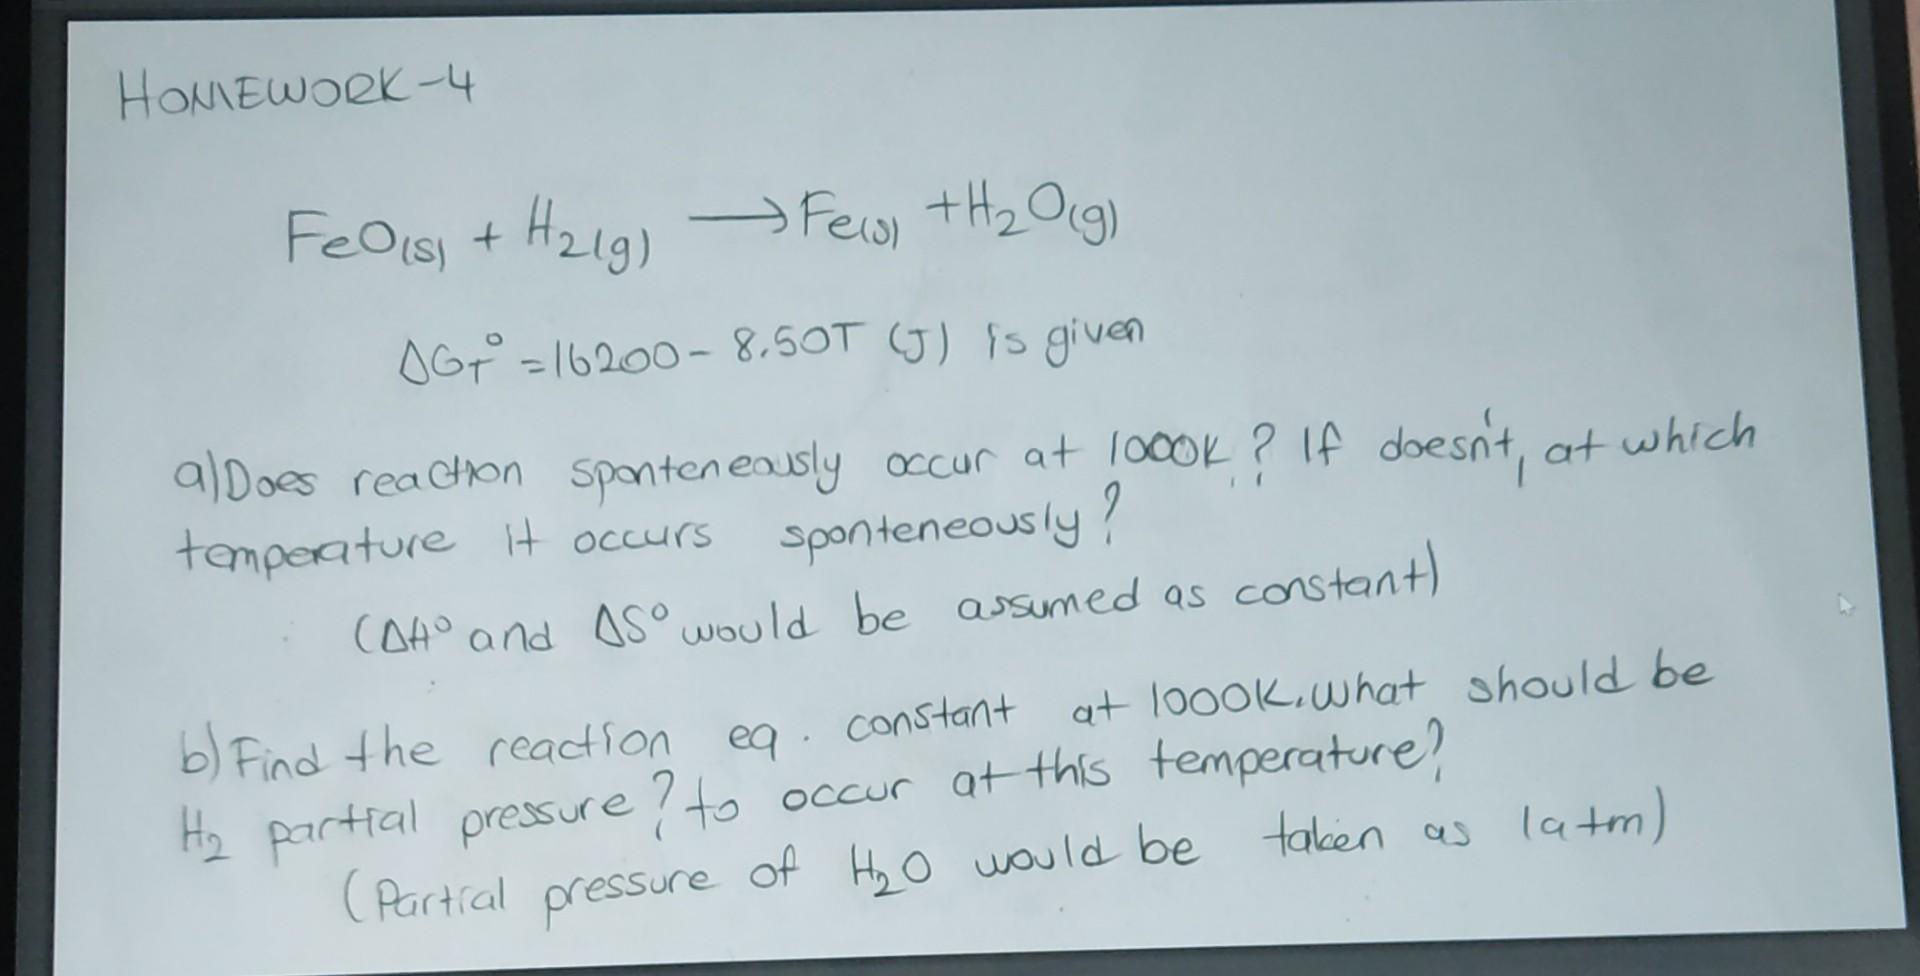 HOMEWORK-4
FeO(s) + H2(g) → Fe(s) + H2O(g)
ΔGT° = 16200 - 8.50T (J) is given
a) Does reaction sponteneously occur at 1000K? If doesn't, at which
temperature it occurs sponteneously?
(ΔH° and ΔS° would be assumed as constant)
b) Find the reaction eq. constant at 1000K. What should be
H2 partial pressure? to occur at this temperature?
(Partial pressure of H2O would be taken as 1atm)